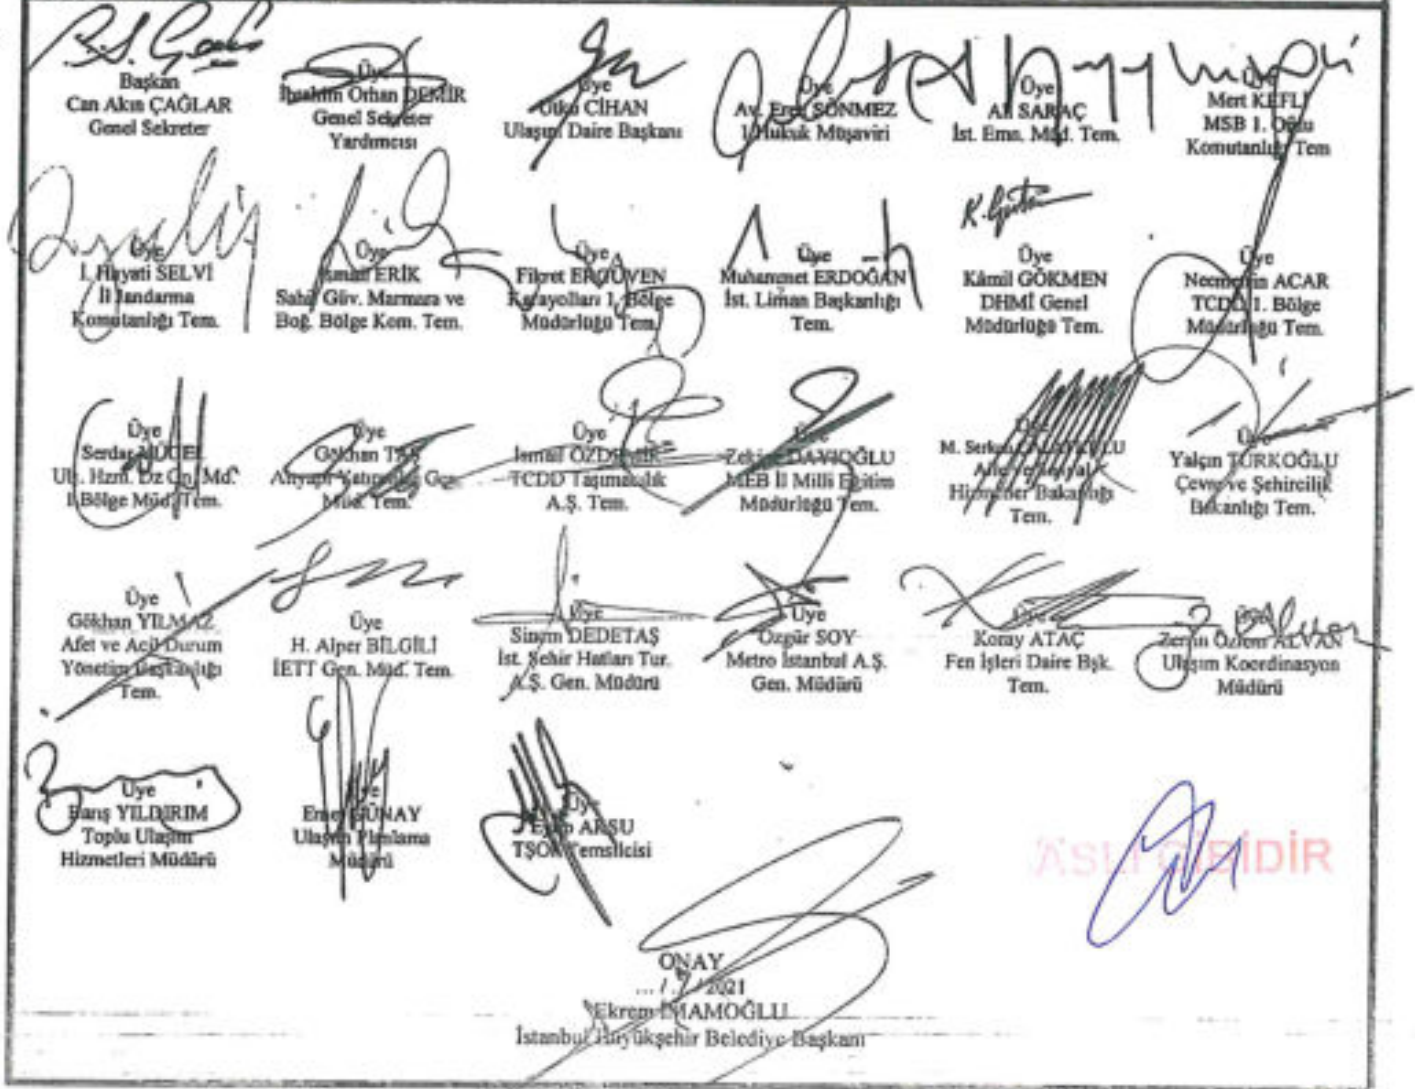 Başkan
Can Akın ÇAĞLAR
Genel Sekreter
Üye
İbrahim Orhan DEMİR
Genel Sekreter
Yardımcısı
Üye
Utku CİHAN
Ulaşım Daire Başkanı
Üye
Av. Eren SÖNMEZ
1. Hukuk Müşaviri
Üye
Ali SARAÇ
İst. Emn. Müd. Tem.
Üye
Mert KEFLİ
MSB 1. Ordu
Komutanlığı Tem
Üye
İ. Hayati SELVİ
İl Jandarma
Komutanlığı Tem.
Üye
İsmail ERİK
Sahil Güv. Marmara ve
Boğ. Bölge Kom. Tem.
Üye
Fikret ERGÜVEN
Karayolları 1. Bölge
Müdürlüğü Tem.
Üye
Muhammet ERDOĞAN
İst. Liman Başkanlığı
Tem.
K. Gökmen
Üye
Kâmil GÖKMEN
DHMİ Genel
Müdürlüğü Tem.
Üye
Necmettin ACAR
TCDD 1. Bölge
Müdürlüğü Tem.
Üye
Serdar
Ulş. Hzm. Dz Gn. Md.
1.Bölge Müd. Tem.
Üye
Gökhan TAŞ
Altyapı Yatırımları Gen.
Müd. Tem.
Üye
İsmail ÖZDEMİR
TCDD Taşımacılık
A.Ş. Tem.
Üye
MEB İl Milli Eğitim
Müdürlüğü Tem.
Üye
M. Serkan
Aile ve Sosyal
Hizmetler Bakanlığı
Tem.
Üye
Yalçın TÜRKOĞLU
Çevre ve Şehircilik
Bakanlığı Tem.
Üye
Gökhan YILMAZ
Afet ve Acil Durum
Yönetim Başkanlığı
Tem.
Üye
H. Alper BİLGİLİ
İETT Gen. Müd. Tem.
Üye
Sinem DEDETAŞ
İst. Şehir Hatları Tur.
A.Ş. Gen. Müdürü
Üye
Özgür SOY
Metro İstanbul A.Ş.
Gen. Müdürü
Üye
Koray ATAÇ
Fen İşleri Daire Bşk.
Tem.
Üye
Zerrin Özlem ALVAN
Ulaşım Koordinasyon
Müdürü
Üye
Barış YILDIRIM
Toplu Ulaşım
Hizmetleri Müdürü
Üye
GÜNAY
Ulaşım Planlama
Müdürü
Üye
Eyüp AKSU
TŞOF Temsilcisi
ASLI GİBİDİR
ONAY
... / . / 2021
Ekrem İMAMOĞLU
İstanbul Büyükşehir Belediye Başkanı